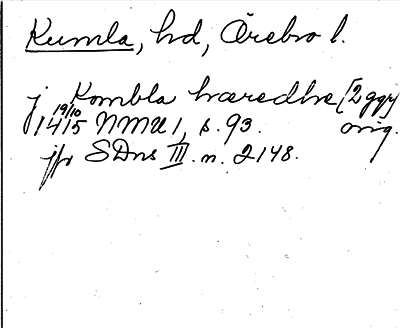 Kumla, hd, Örebro l.
j Kombla hæredhe [2 ggr]
19/10 1415 NMU 1, s. 93. orig.
jfr SDns III. n. 2148.